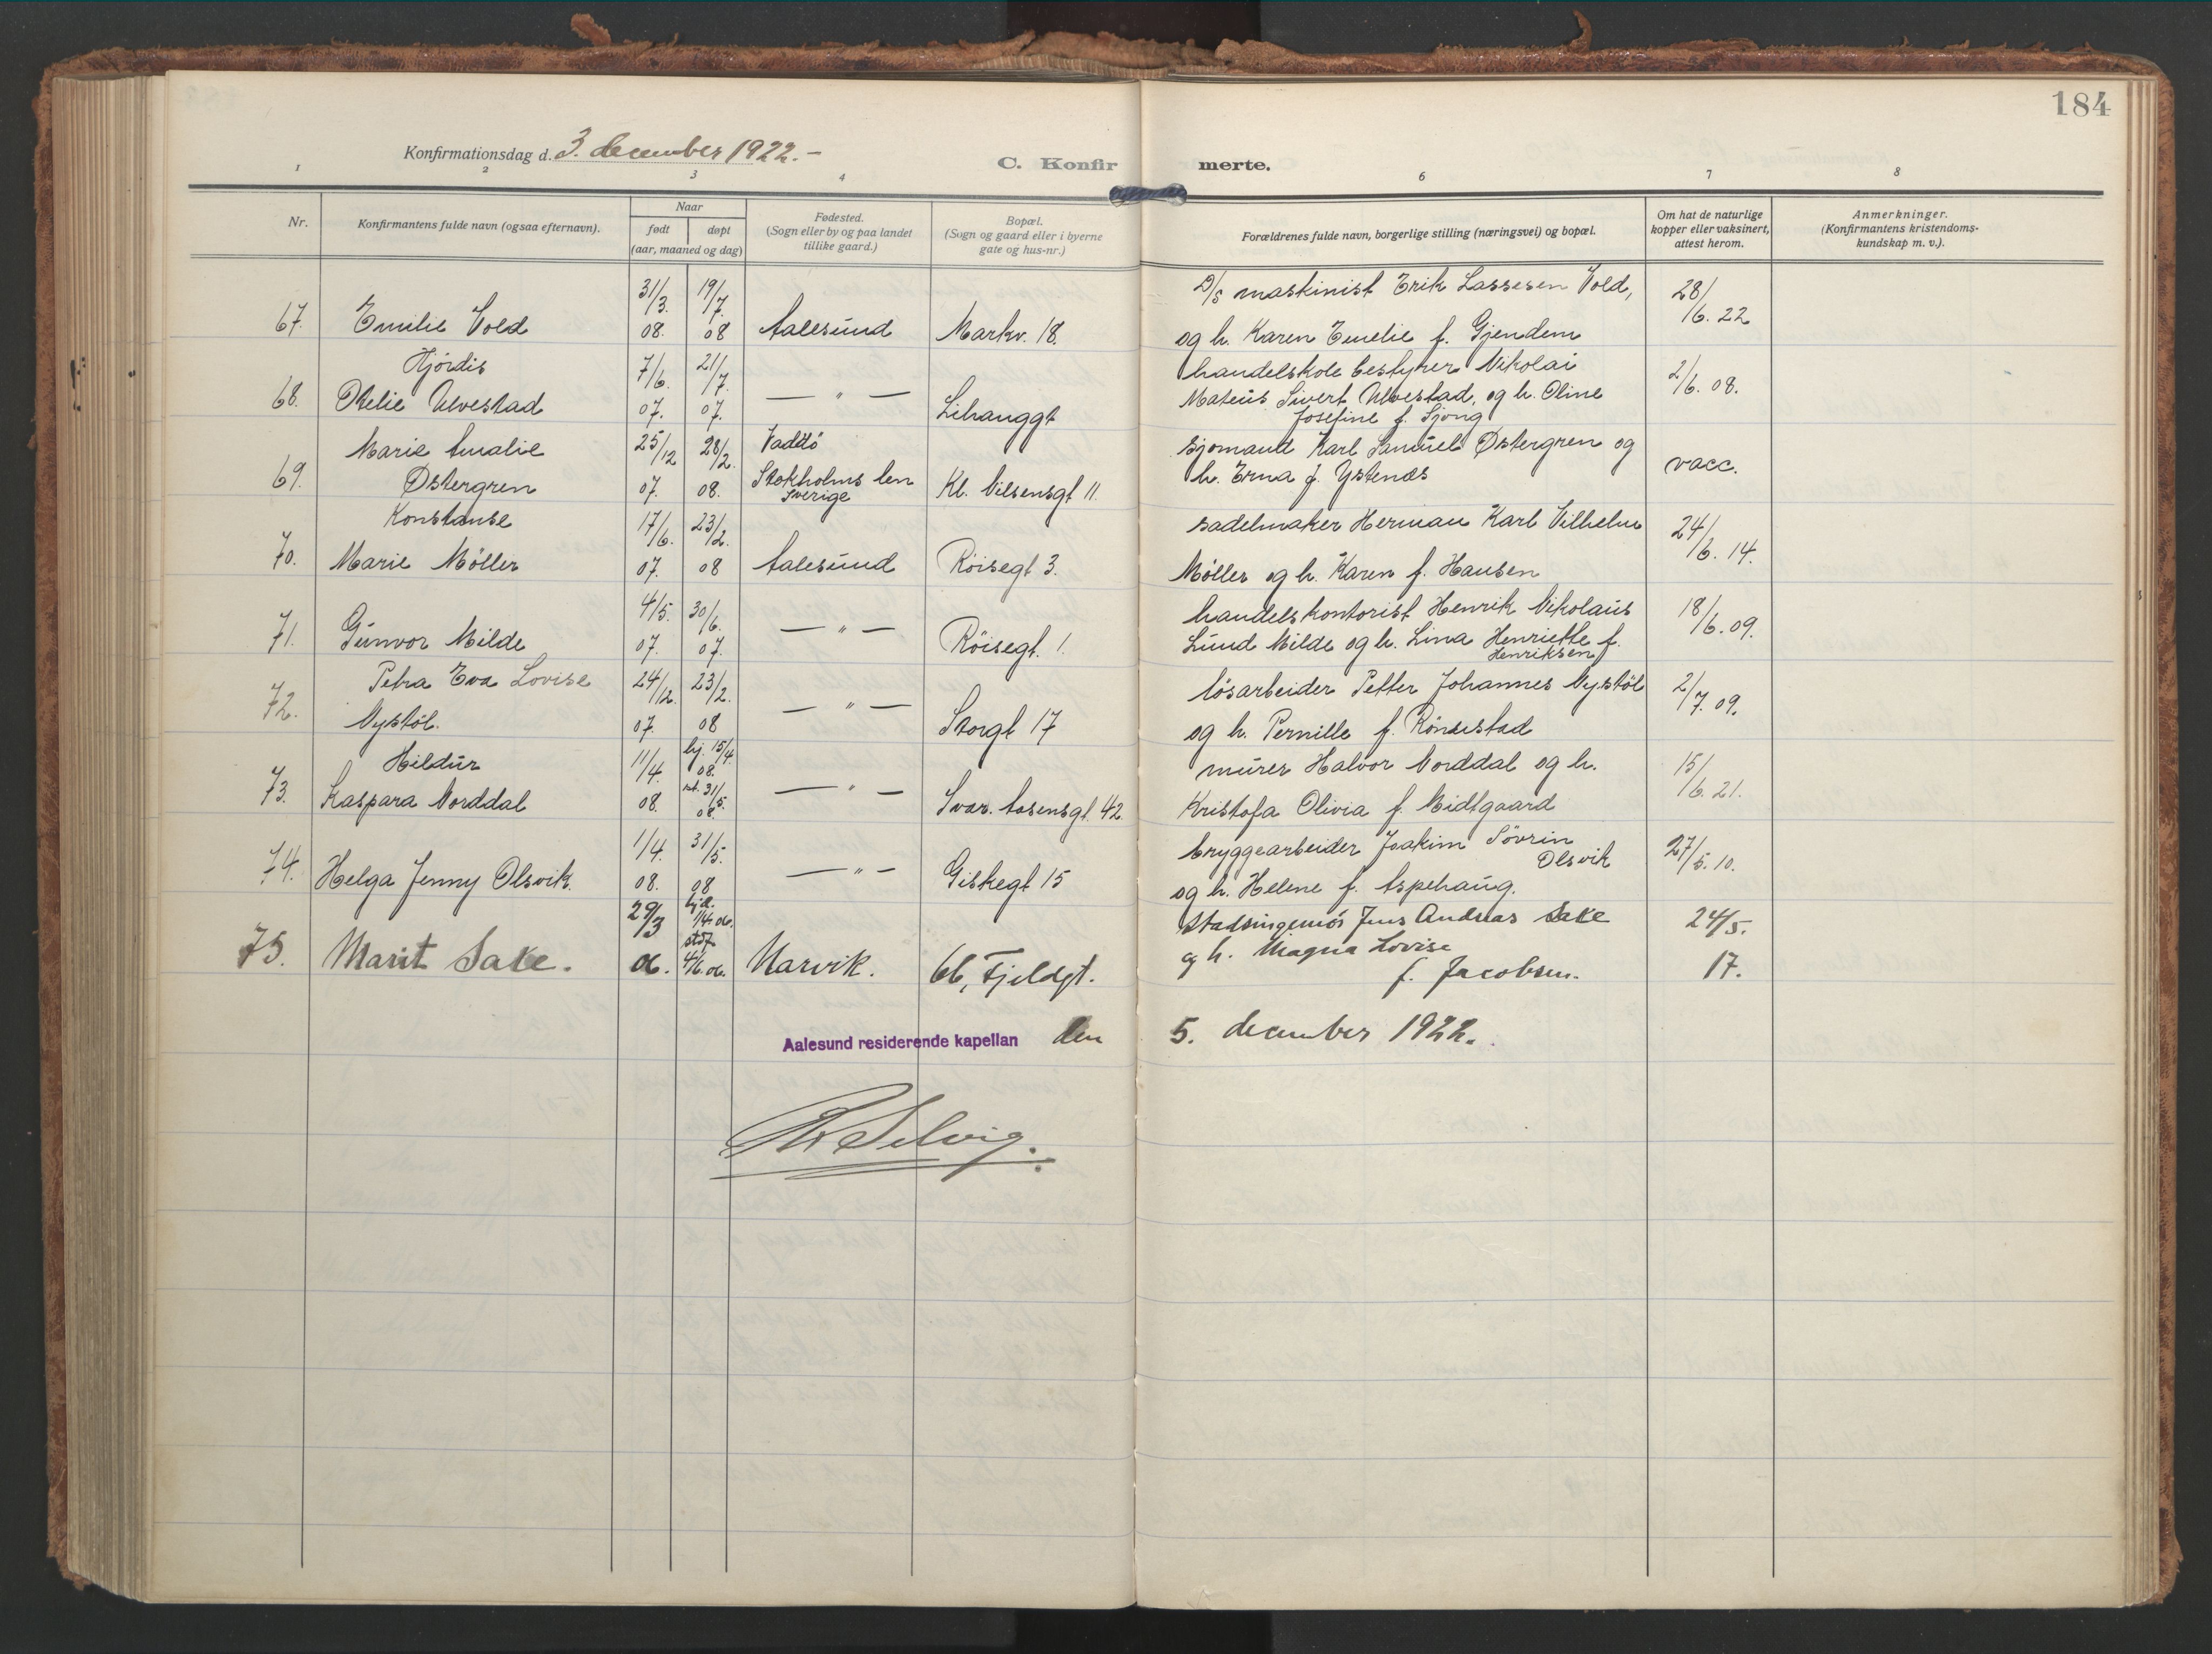 184
Konfirmationsdag d. 3. december 1922.-
C. Konfir merte.
1 2 3 4 6 7 8
Nr.
Konfirmantens fulde navn (ogsaa efternavn).
Naar
født døpt
(aar, maaned og dag)
Fødested.
(Sogn eller by og paa landet
tillike gaard.)
Bopæl.
(Sogn og gaard eller i byerne
gate og hus-nr.)
Forældrenes fulde navn, borgerlige stilling (næringsvei) og bopæl.
Om hat de naturlige
kopper eller vaksinert,
attest herom.
Anmerkninger.
(Konfirmantens kristendoms-
kundskap m. v.).
31/3. 19/7. D/S maskinist Erik Lassesen Vold, 28/
67. Emilie Vold 08. 08 Aalesund Markv. 18. og h. Karen Emelie f. Gjendem 16. 22
Hjördis 7/6. 21/7. handelskole bestyrer Nikolai
68. Otelie Ulvestad 07. 07. — " — Lihauggt Mateus Sivert Ulvestad, og h. Oline 2/6. 08.
Josefine f. Sjong
Marie Amalie 25/12 28/2. Vaddö sjömand Karl Samuel Østergren og
69. Østergren 07. 08. Stokholms len Kl. Nilsensgt 11. h. Erna f. Ystenes vacc.
Sverige
Konstanse 17/6. 23/2. sadelmaker Herman Karl Vilhelm 24/
70. Marie Möller 07. 08 Aalesund Röisegt 3. Möller og h. Karen f. Hansen 6. 14.
4/5. 30/6. handelskontorist Henrik Nikolaus 18/
71. Gunvor Milde 07. 07. — " — Röisegt. 1. Lund Milde og h. Lina Henriette f. 6. 09.
Henriksen
Petra Eva Lovise 24/12. 23/2. lösarbeider Petter Johannes Nystöl 2/
72. Nystöl. 07. 08 — " — Storgt 17 og h. Pernille f. Rönnestad 7. 09.
Hildur 11/4. hj. 15/4. 08. murer Halvor Norddal og h. 15/
73. Kaspara Norddal 08. st. 31/5. 08. — " — Ivar. Aasensgt. 42. Kristofa Olivia f. Midtgaard 6. 21.
1/4. 31/5. bryggearbeider Joakim Sövrin
Olsvik
74. Helga Jenny Olsvik. 08. 08 — " — Giskegt 15 og h. Helene f. Aspehaug. 27/5. 10.
29/3 hjd. 1/4. 06. Stadsingeniör Jens Andreas Sake 24/5.
75. Marit Sake. 06. stdf. 4/6. 06. Narvik. 66, Fjeldgt. og h. Magna Lovise 17.
f. Jacobsen.
Aalesund residerende kapellan den 5. december 1922.
Selvig.